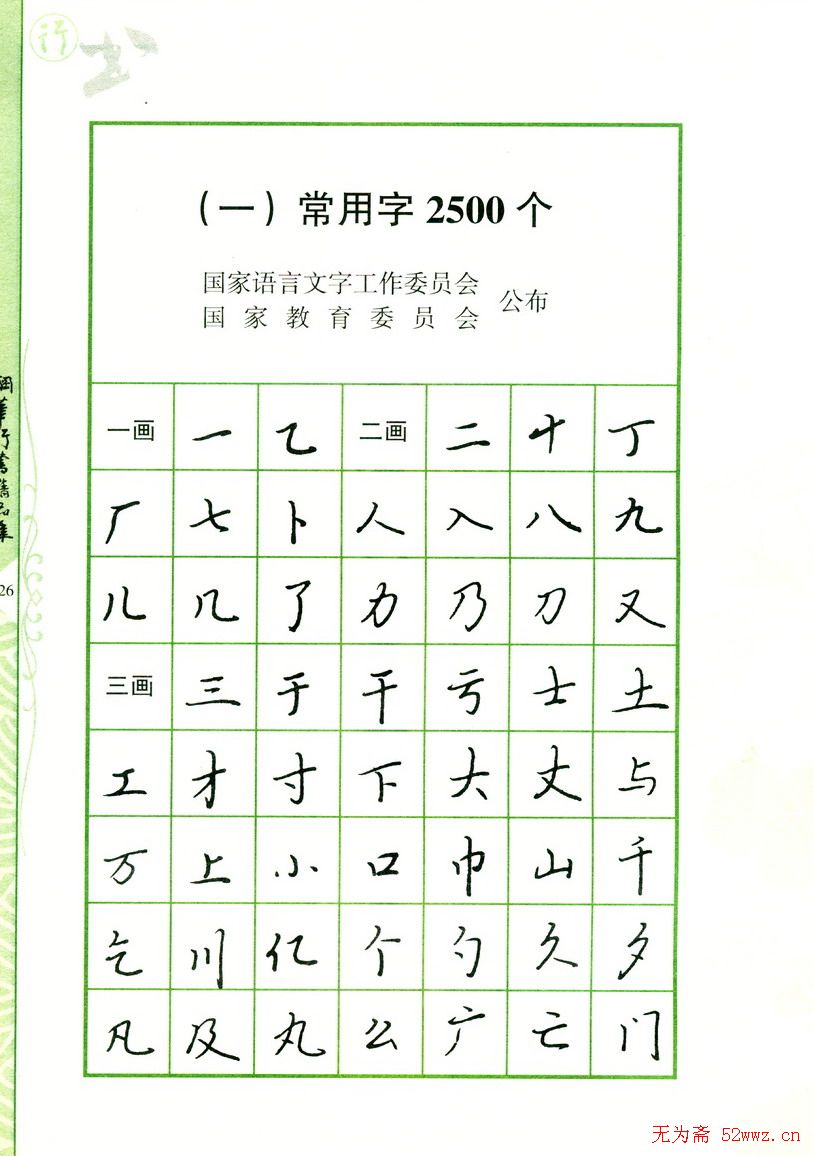 行
书
（一）常用字 2500 个
国家语言文字工作委员会
国家教育委员会
公布
一画 一 乙 二画 二 十 丁
厂 七 卜 人 入 八 九
儿 几 了 力 乃 刀 又
三画 三 于 干 亏 士 土
工 才 寸 下 大 丈 与
万 上 小 口 巾 山 千
乞 川 亿 个 勺 久 夕
凡 及 丸 么 广 亡 门
26
无为斋 52wwz.cn